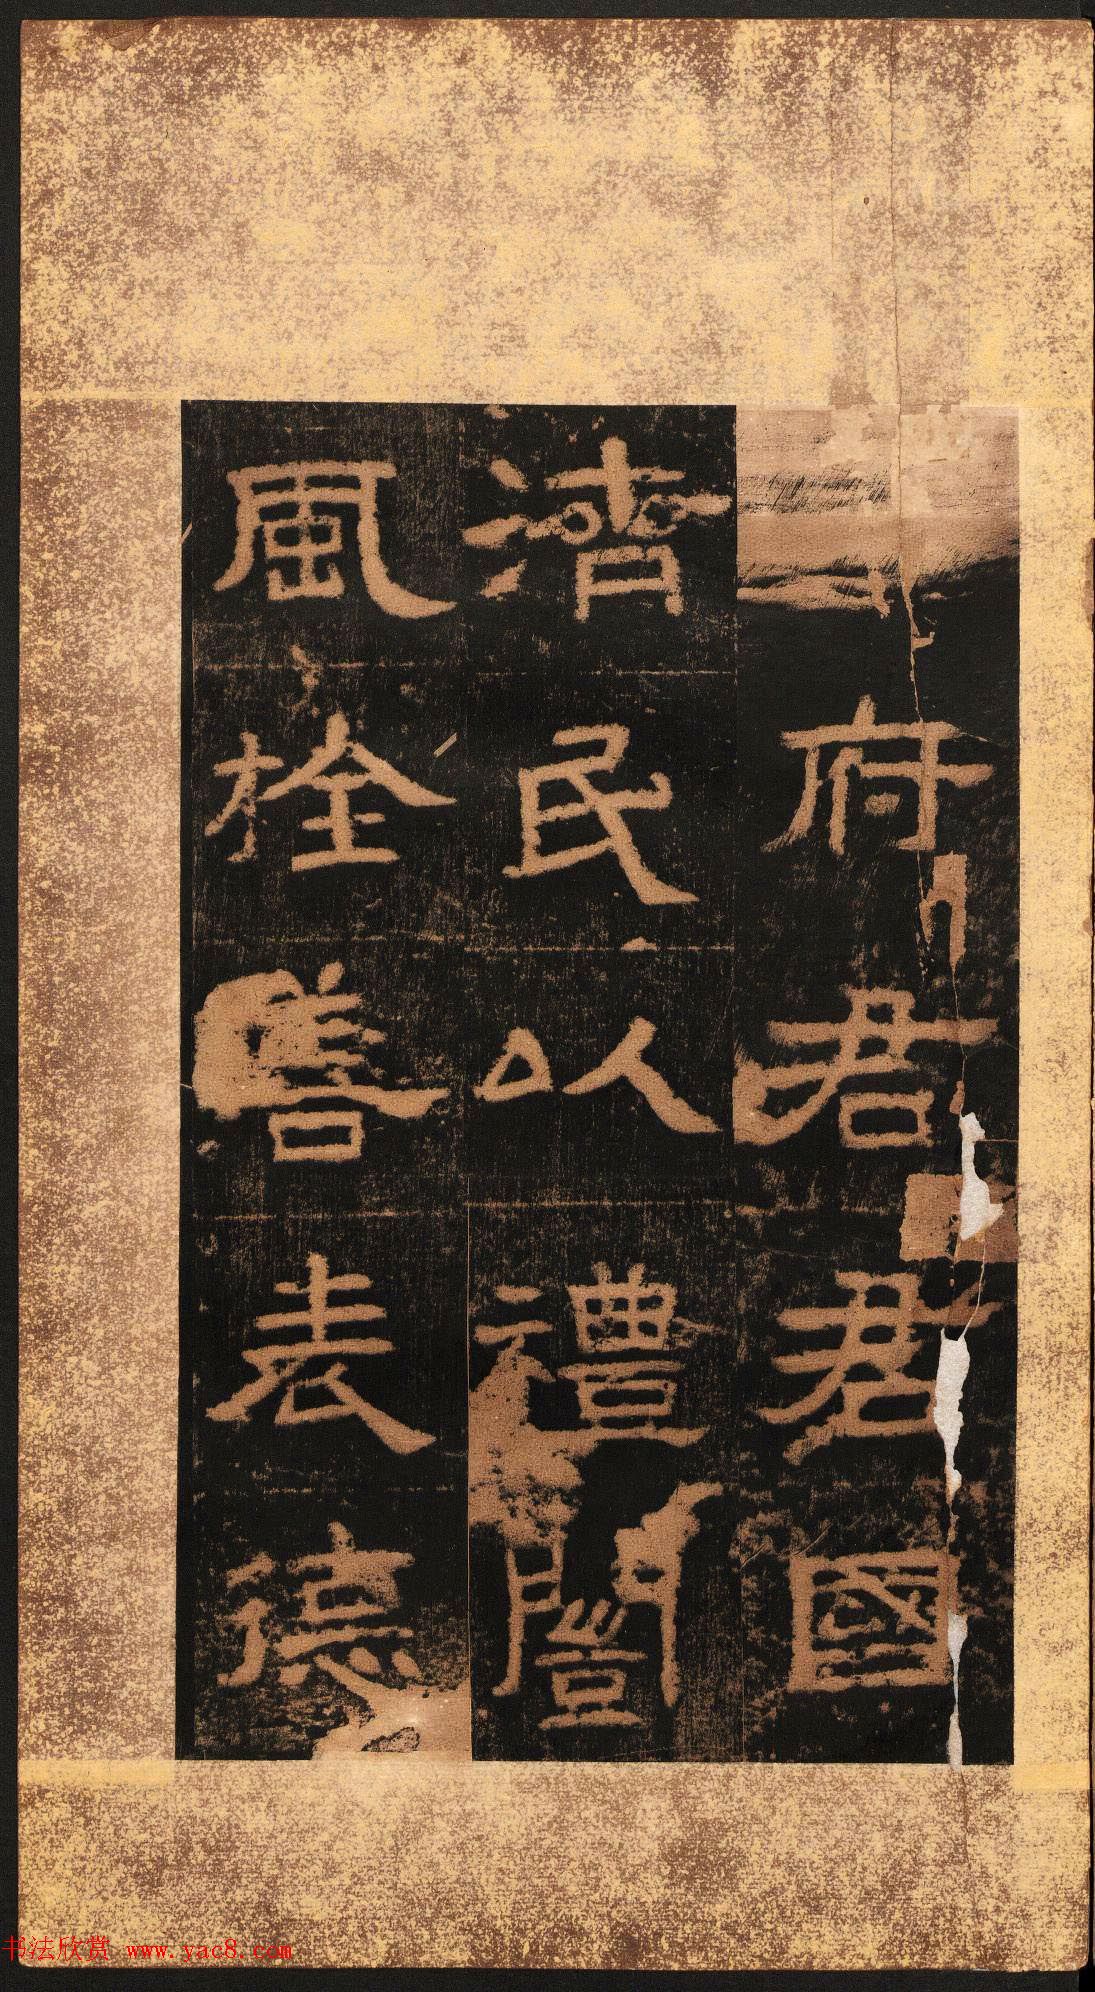 府君君國
濟民以禮闓
風栓善表德
书法欣赏 www.yac8.com